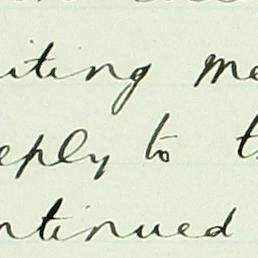 iting me
eply to t
ntinued